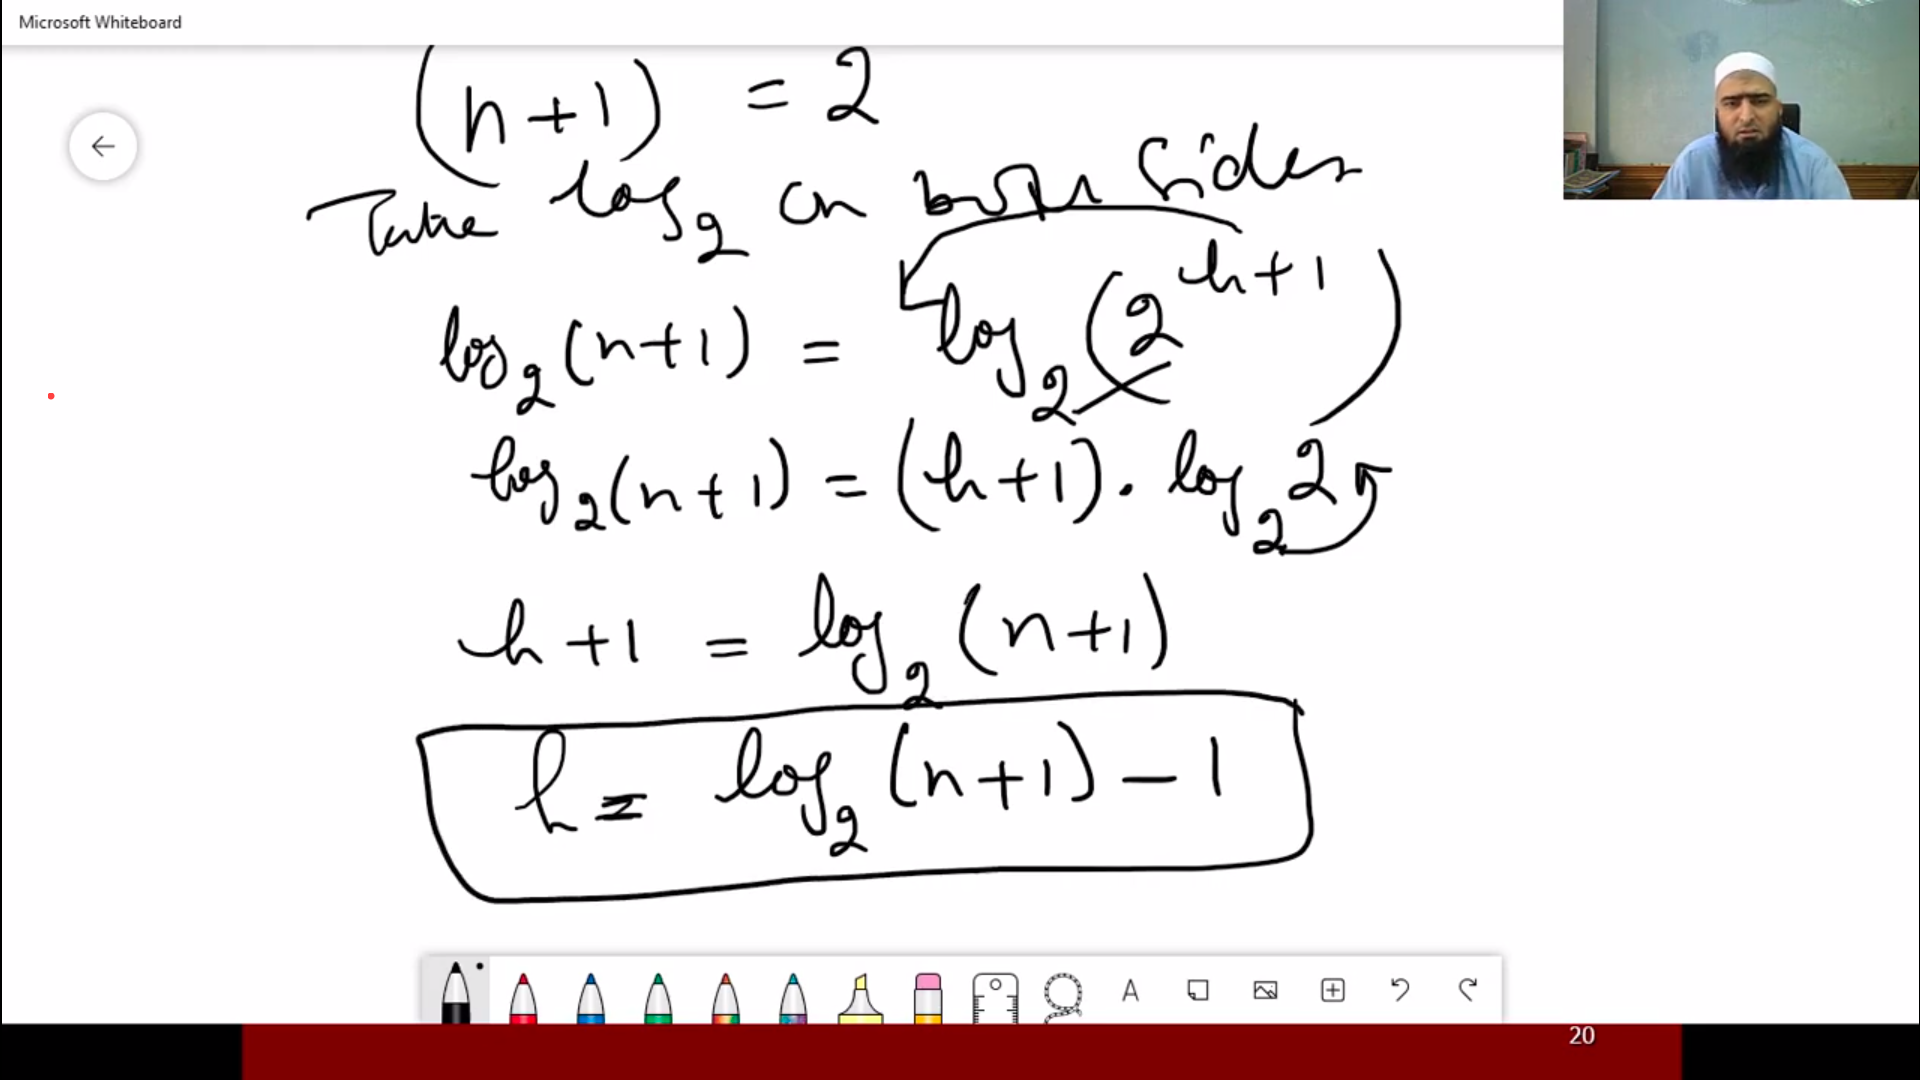 Microsoft Whiteboard
(n+1) = 2
Take log₂ on both sides
log₂(n+1) = log₂(2^(h+1))
log₂(n+1) = (h+1) · log₂2
h+1 = log₂(n+1)
h = log₂(n+1) - 1
A
20